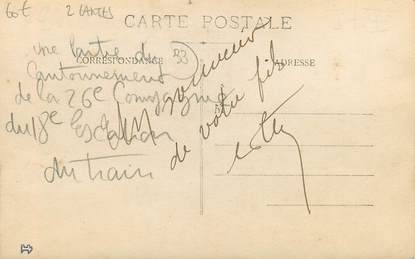 60€ 2 CARTES
CARTE POSTALE
CORRESPONDANCE
ADRESSE
une partie du
Cantonnement
de la 26e Compagnie
du 18e Escadron
du train
33
Un souvenir
de votre fils